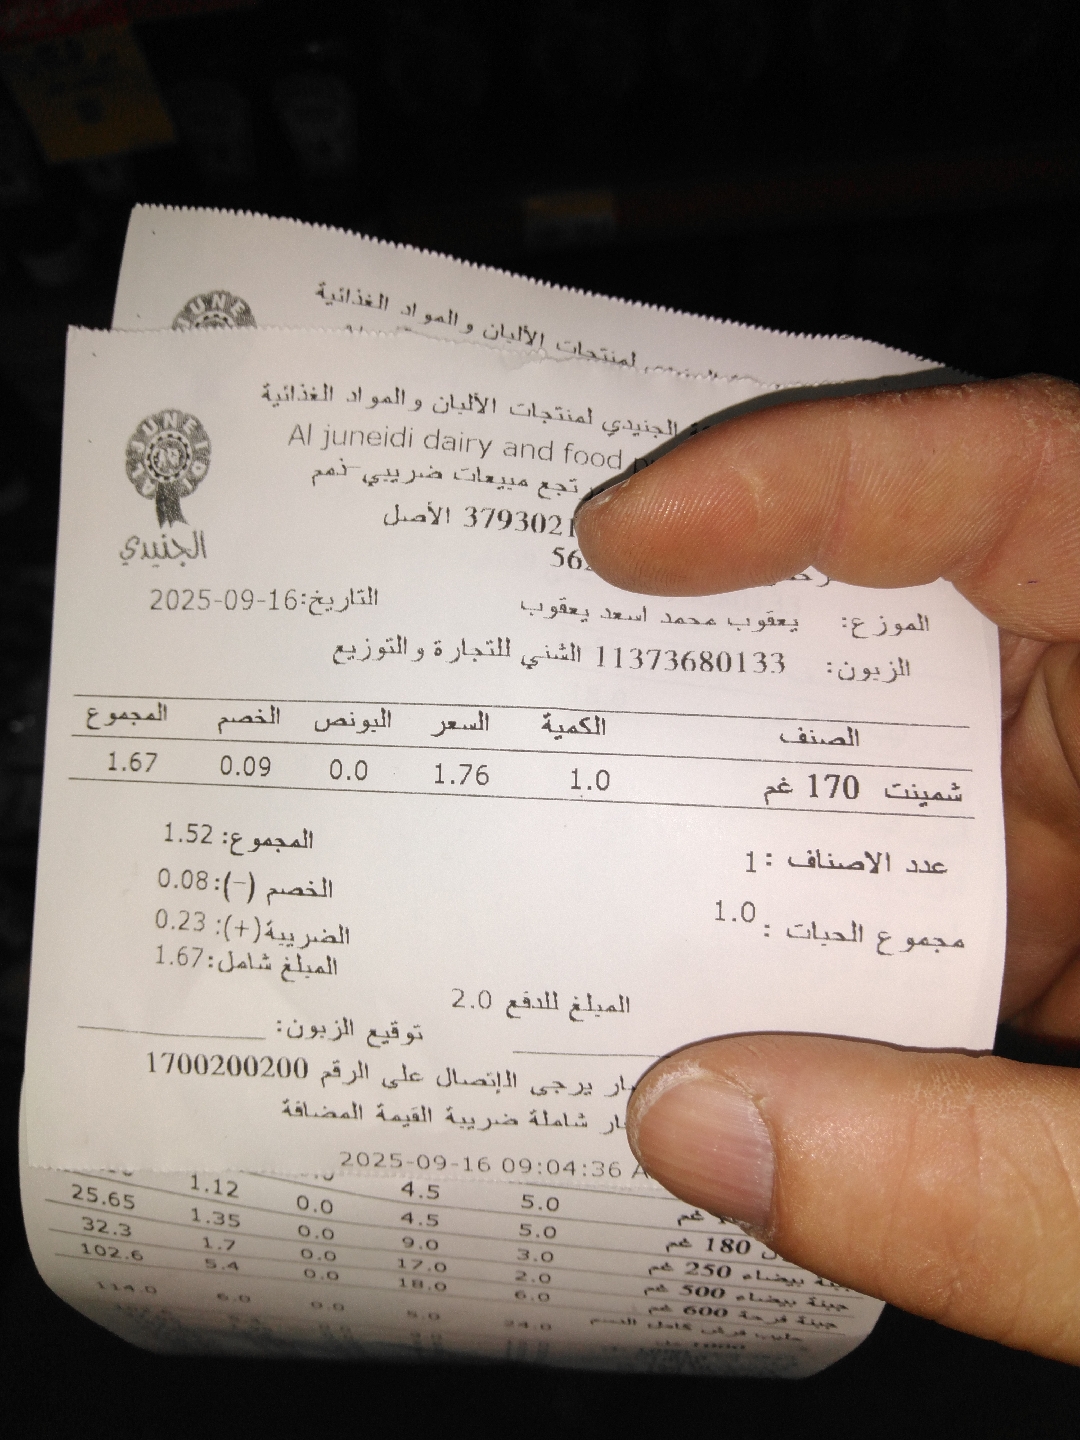 JUNE
لمنتجات الألبان والمواد الغذائية
الجنيدي لمنتجات الألبان والمواد الغذائية
Al juneidi dairy and food
AL JUNEIDI
الجنيدي
تجع مبيعات ضريبي-ذمم
3793021 الأصل
56
الموزع: يعقوب محمد اسعد يعقوب
التاريخ:2025-09-16
الزبون: 11373680133 الشني للتجارة والتوزيع
الصنف الكمية السعر البونص الخصم المجموع
شمينت 170 غم 1.0 1.76 0.0 0.09 1.67
عدد الاصناف : 1
مجموع الحبات : 1.0
المجموع: 1.52
الخصم (-): 0.08
الضريبة(+): 0.23
المبلغ شامل: 1.67
المبلغ للدفع 2.0
توقيع الزبون:
يرجى الإتصال على الرقم 1700200200
شاملة ضريبة القيمة المضافة
2025-09-16 09:04:36 A
غم 5.0 4.5 1.12
180 غم 5.0 4.5 0.0 1.35 25.65
بيضاء 250 غم 3.0 9.0 0.0 1.7 32.3
جبنة بيضاء 500 غم 2.0 17.0 0.0 5.4 102.6
جبنة فرحة 600 غم 6.0 18.0 0.0 6.0 114.0
حليب كامل الدسم 24.0 5.0 0.0